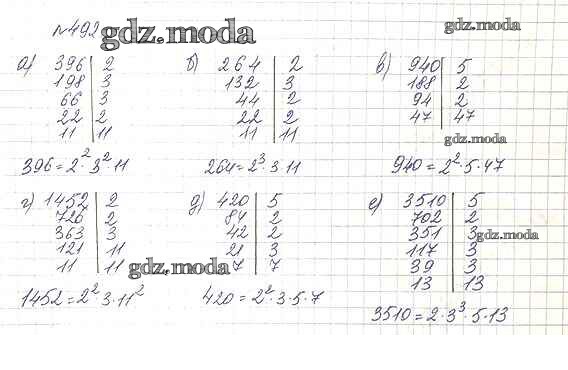 №492 gdz.moda gdz.moda
а) 396 | 2
198 | 3
66 | 3
22 | 2
11 | 11
396 = 2² · 3² · 11
б) 264 | 2
132 | 3
44 | 2
22 | 2
11 | 11
264 = 2³ · 3 · 11
в) 940 | 5
188 | 2
94 | 2
47 | 47
gdz.moda
940 = 2² · 5 · 47
г) 1452 | 2
726 | 2
363 | 3
121 | 11
11 | 11
gdz.moda
1452 = 2² · 3 · 11²
д) 420 | 5
84 | 2
42 | 2
21 | 3
7 | 7
420 = 2² · 3 · 5 · 7
е) 3510 | 5
702 | 2
351 | 3
gdz.moda
117 | 3
39 | 3
13 | 13
3510 = 2 · 3³ · 5 · 13